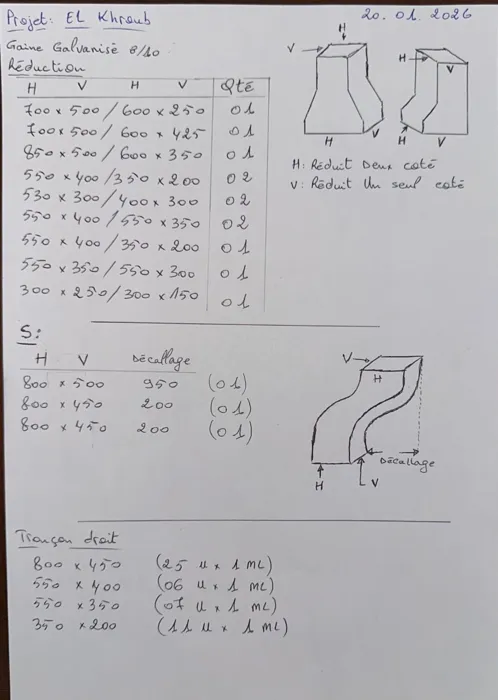 Projet: EL Khroub
20.01.2026
Gaine Galvanisé 8/10
Réduction
H V H V Qté
700 x 500 / 600 x 250 01
700 x 500 / 600 x 425 01
850 x 500 / 600 x 350 01
550 x 400 / 350 x 200 02
530 x 300 / 400 x 300 02
550 x 400 / 550 x 350 02
550 x 400 / 350 x 200 01
550 x 350 / 550 x 300 01
300 x 250 / 300 x 150 01
H
V
H
V
H
V
H
V
H: Réduit Deux coté
V: Réduit Un seul coté
S:
H V Décallage
800 x 500 950 (01)
800 x 450 200 (01)
800 x 450 200 (01)
V
H
Décallage
H
V
Tronçon droit
800 x 450 (25 u x 1 ML)
550 x 400 (06 u x 1 ML)
550 x 350 (07 u x 1 ML)
350 x 200 (11 u x 1 ML)